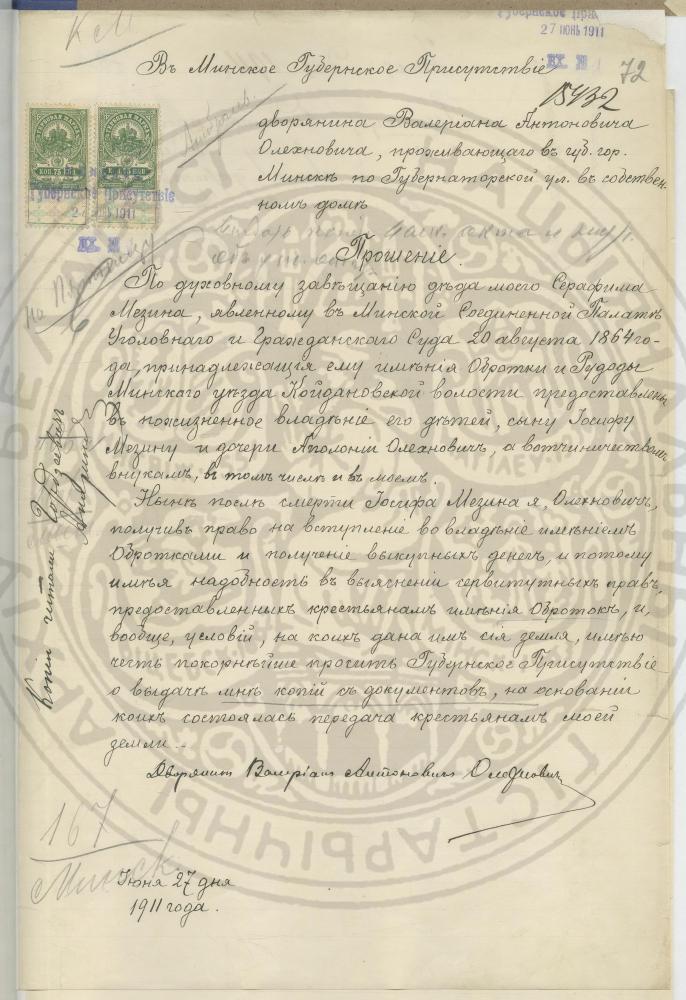 Губернское При
27 ІЮНЬ 1911
К М
72
Въ Минское Губернское Присутствіе
15432
дворянина Валеріана Антоновича
Олехновича, проживающаго въ губ. гор.
Минскѣ по Губернаторской ул. въ собствен-
номъ домѣ
КОП. 75
Губернское Присутствіе
1911
Прошеніе.
По духовному завѣщанію дѣда моего Серафима
Мезина, явленному въ Минской Соединенной Палатѣ
Уголовнаго и Гражданскаго Суда 20 августа 1864 го-
да, принадлежащія ему имѣнія Обротки и Рудоды
Минскаго уѣзда Койдановской волости предоставлены
въ пожизненное владѣніе его дѣтей, сыну Іосифу
Мезину и дочери Аполоніи Олехновичъ, а вотчинничествомъ
внукамъ, въ томъ числѣ и въ моемъ.
Нынѣ послѣ смерти Іосифа Мезина я, Олехновичъ,
получивъ право на вступление во владѣніе имѣніемъ
Обротками и получение выкупныхъ денегъ, и потому
имѣя надобность въ выясненіи сервитутныхъ правъ,
предоставленныхъ крестьянамъ имѣнія Обротокъ, и,
вообще, условій, на коихъ дана имъ сія земля, имѣю
честь покорнѣйше просить Губернское Присутствіе
о выдачѣ мнѣ копій съ документовъ, на основаніи
коихъ состоялась передача крестьянамъ моей
земли.
Дворянинъ Валеріанъ Антоновичъ Олехновичъ
Копіи читали
167
Минск.
Іюня 27 дня
1911 года.